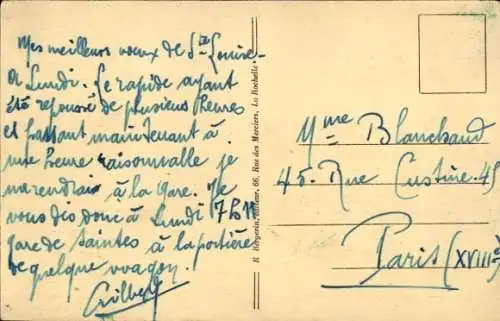 Mes meilleurs voeux de Ste Louise.
A Lundi. Le rapide ayant
été repoussé de plusieurs heures
et passant maintenant à
une heure raisonnable je
me rendrai à la gare. Je
vous dis donc à Lundi 17h11
gare de Saintes à la portière
de quelque wagon.
Gilbert
R. Bergevin, éditeur, 66, Rue des Merciers, La Rochelle
Mme Blanchaud
45. Rue Custine. 45
Paris (XVIIIe)